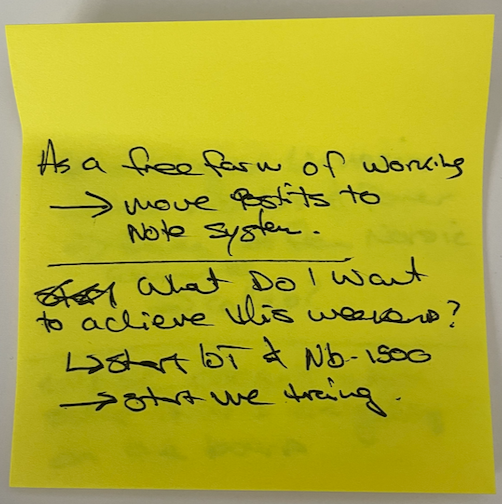 As a free form of working
→ move Postits to
Note system.
What Do I Want
to achieve this weekend?
↳ start IoT & Nb-1500
→ start we